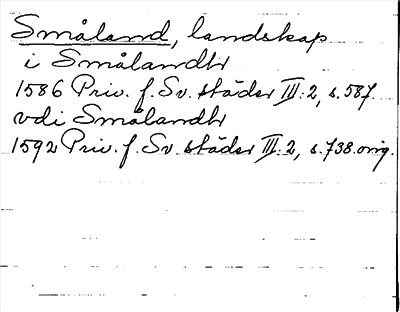 Småland, landskap
i Smålandh
1586 Priv. f. Sv. städer III:2, s.587.
vdi Smålandh
1592 Priv. f. Sv. städer III:2, s.738.orig.